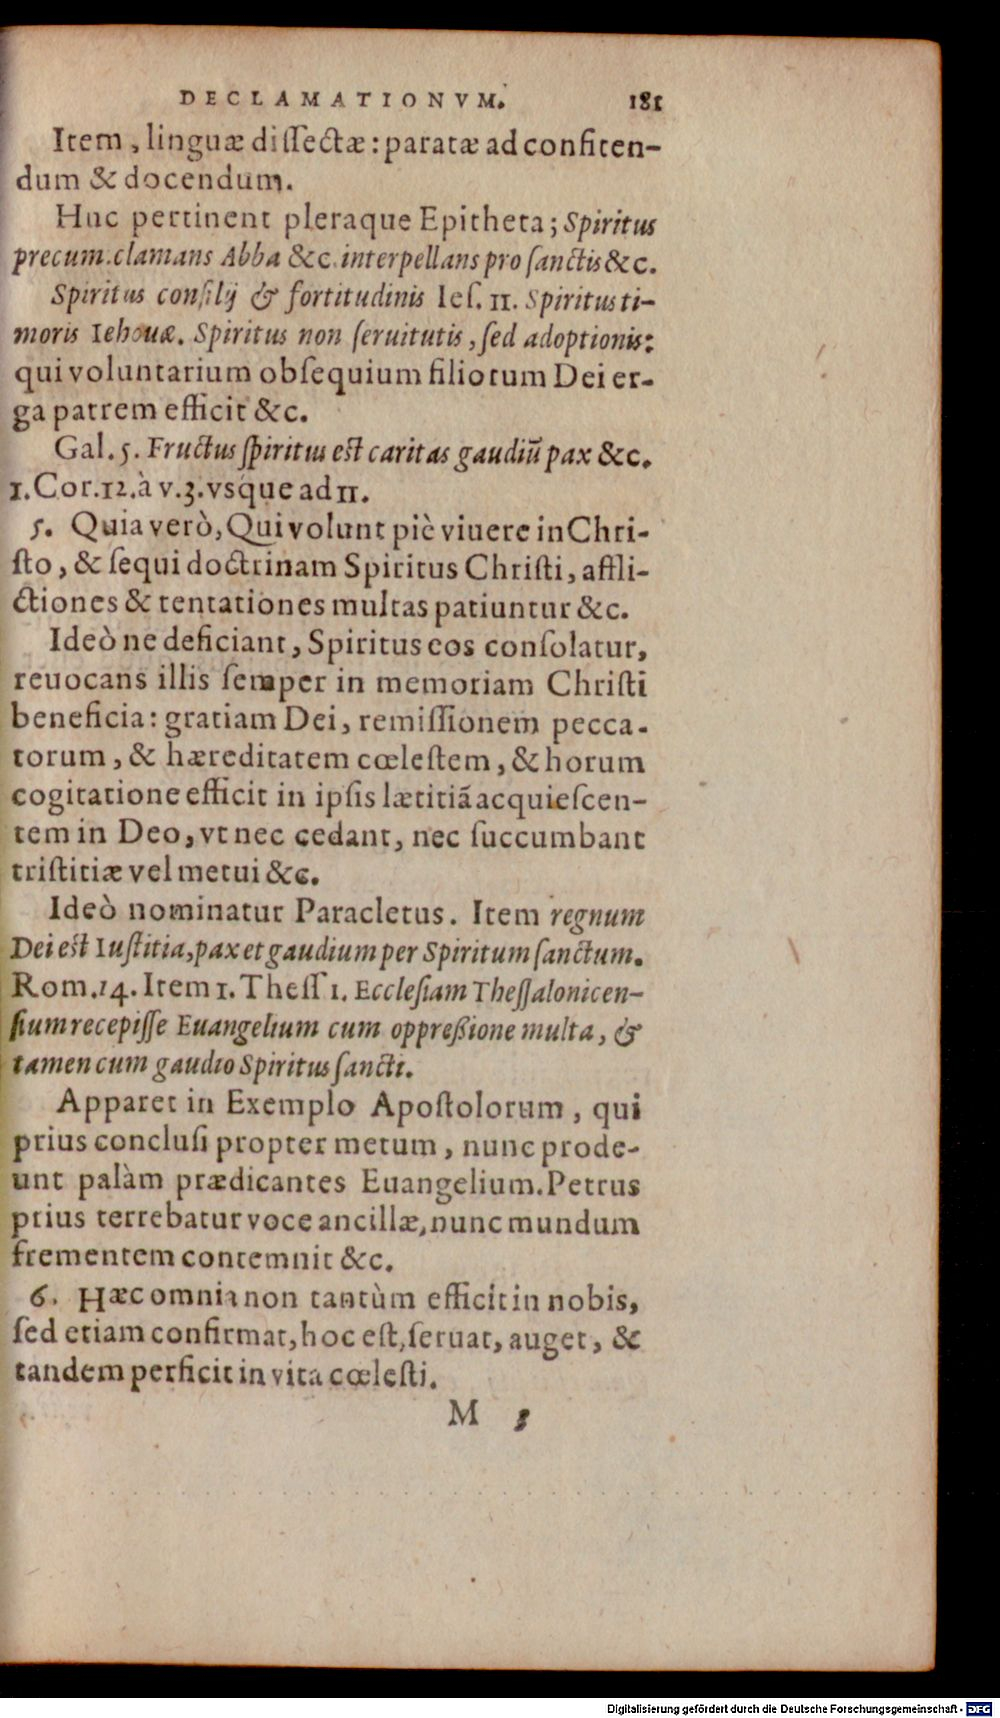 DECLAMATIONVM. 181
Item, linguæ dissectæ: paratæ ad confiten-
dum & docendum.
Huc pertinent pleraque Epitheta; Spiritus
precum. clamans Abba &c. interpellans pro sanctis &c.
Spiritus consilij & fortitudinis Ies. 11. Spiritus ti-
moris Iehouæ. Spiritus non seruitutis, sed adoptionis:
qui voluntarium obsequium filiorum Dei er-
ga patrem efficit &c.
Gal. 5. Fructus spiritus est caritas gaudiũ pax &c.
1. Cor. 12. à v. 3. vsque ad 11.
5. Quia verò, Qui volunt piè viuere in Chri-
sto, & sequi doctrinam Spiritus Christi, affli-
ctiones & tentationes multas patiuntur &c.
Ideò ne deficiant, Spiritus eos consolatur,
reuocans illis semper in memoriam Christi
beneficia: gratiam Dei, remissionem pecca-
torum, & hæreditatem cœlestem, & horum
cogitatione efficit in ipsis lætitiã acquiescen-
tem in Deo, vt nec cedant, nec succumbant
tristitiæ vel metui &c.
Ideò nominatur Paracletus. Item regnum
Dei est Iustitia, pax et gaudium per Spiritum sanctum.
Rom. 14. Item 1. Thess 1. Ecclesiam Thessalonicen-
sium recepisse Euangelium cum oppreßione multa, &
tamen cum gaudio Spiritus sancti.
Apparet in Exemplo Apostolorum, qui
prius conclusi propter metum, nunc prode-
unt palàm prædicantes Euangelium. Petrus
prius terrebatur voce ancillæ, nunc mundum
frementem contemnit &c.
6. Hæc omnia non tantùm efficit in nobis,
sed etiam confirmat, hoc est, seruat, auget, &
tandem perficit in vita cœlesti.
M 3
Digitalisierung gefördert durch die Deutsche Forschungsgemeinschaft - DFG